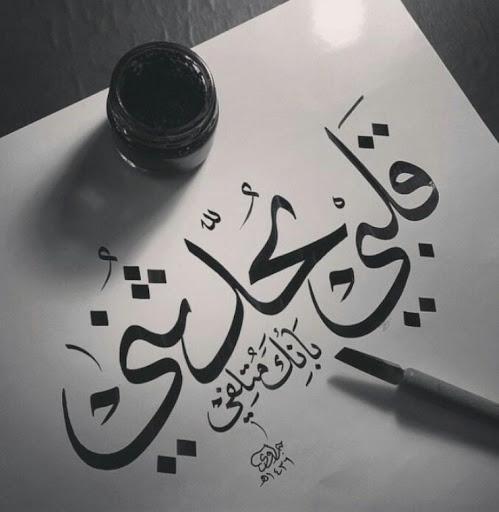 قلبي يحدّثني
بأنك متلفي
١٤٣٦هـ